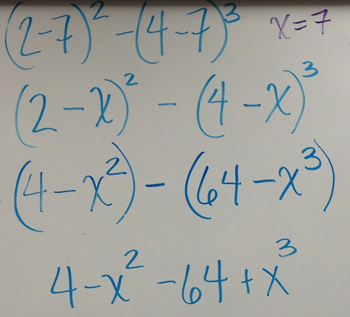 (2-7)² -(4-7)³ x=7
(2-x)² - (4-x)³
(4-x²) - (64-x³)
4-x² -64+x³